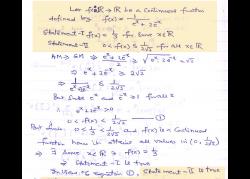 Let f: R → R be a Continuous function
defined by f(x) = 1/(e^x + 2e^-x)
Statement-I f(x) = 1/3 for some x ∈ R
Statement-II 0 < f(x) ≤ 1/(2√2) for all x ∈ R
AM ≥ GM ⇒ (e^x + 2e^-x)/2 ≥ √(e^x · 2e^-x) = √2
⇒ e^x + 2e^-x ≥ 2√2
⇒ 1/(e^x + 2e^-x) ≤ 1/(2√2)
But since e^x and e^-x
e^x + 2e^-x > 0
0 < f(x) ≤ 1/(2√2) ①
But since, 0 < 1/3 < 1/(2√2) and f(x) is Continuous
function hence it attains all values in (0, 1/(2√2)]
⇒ ∃ some x ∈ R ∋ f(x) = 1/3
⇒ Statement-I is true
equation ①, Statement-II is true